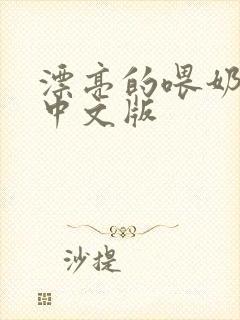 漂亮的喂奶
中文版
沙提